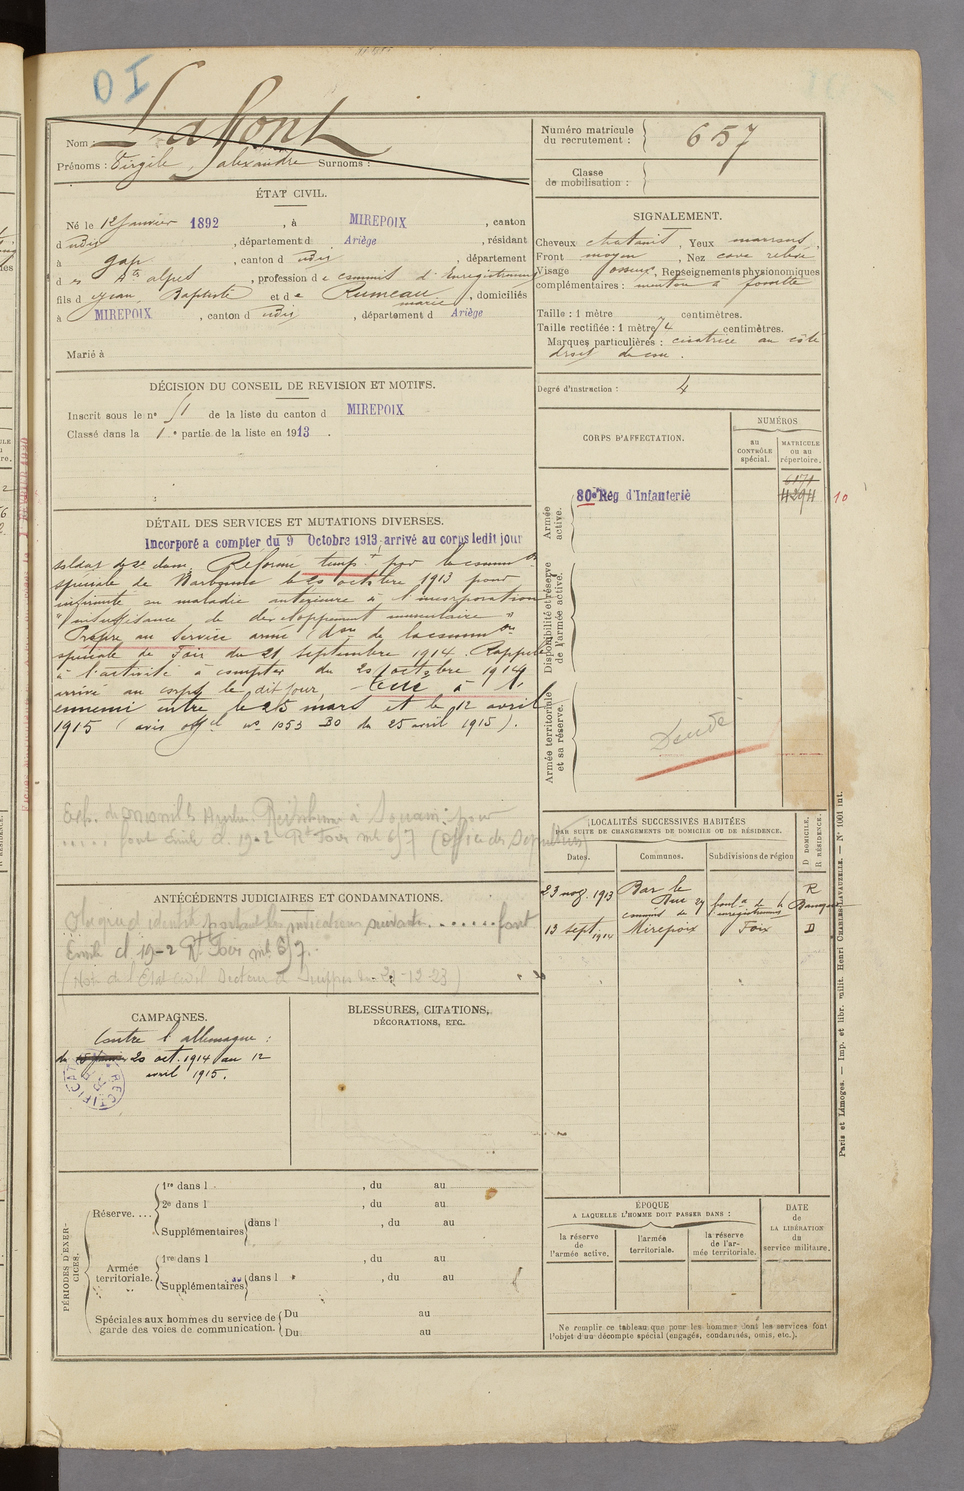 OI
Nom : Laffont
Prénoms : Virgile, alexandre Surnoms :
Numéro matricule
du recrutement : 657
Classe
de mobilisation :
ÉTAT CIVIL.
Né le 12 Janvier 1892, à MIREPOIX, canton
d udit, département d Ariège, résidant
à gap, canton d udit, département
d es Htes alpes, profession de commis d'Enregistrement
fils d jean, Baptiste et de Rumeau marie, domiciliés
à MIREPOIX, canton d udit, département d Ariège
Marié à
SIGNALEMENT.
Cheveux chatains, Yeux marrons,
Front moyen, Nez cave relevé
Visage osseux, Renseignements physionomiques
complémentaires : menton à fossette
Taille : 1 mètre centimètres.
Taille rectifiée : 1 mètre 74 centimètres.
Marques particulières : cicatrice au côté
droit du cou.
Degré d'instruction : 4
DÉCISION DU CONSEIL DE REVISION ET MOTIFS.
Inscrit sous le n° 51 de la liste du canton d MIREPOIX
Classé dans la 1e partie de la liste en 1913.
CORPS D'AFFECTATION.
NUMÉROS
au
CONTRÔLE
spécial.
MATRICULE
ou au
répertoire.
Armée
active.
80e Rég d'Infanterie
6171
4294
10
Disponibilité et réserve
de l'armée active.
Armée territoriale
et sa réserve.
DÉTAIL DES SERVICES ET MUTATIONS DIVERSES.
Incorporé a compter du 9 Octobre 1913, arrivé au corps ledit jour
soldat de 2e classe. Réformé tempre par la common
spéciale de Narbonne le 20 octobre 1913 pour
infirmité ou maladie antérieure à l'incorporation
"insuffisance de développement musculaire"
Propre au service armé (don de la common
spéciale de Foix du 21 septembre 1914. Rappelé
à l'activité à compter du 20 octobre 1914
arrivé au corps le dit jour, tué à l'
ennemi entre le 25 mars et le 12 avril
1915 (avis offel no 1053 30 du 25 avril 1915).
à Souain
Foix mle 657 (Office des Sépultures)
LOCALITÉS SUCCESSIVES HABITÉES
PAR SUITE DE CHANGEMENTS DE DOMICILE OU DE RÉSIDENCE.
Dates.
Communes.
Subdivisions de région
D DOMICILE.
R RÉSIDENCE.
23 nov. 1913 Bar le Duc R
commis de l'enregistrement
13 sept. 1914 Mirepoix Foix D
ANTÉCÉDENTS JUDICIAIRES ET CONDAMNATIONS.
portant les indications suivantes ....... font
Emile cl 19-2 Rt Foix mle 657.
CAMPAGNES.
Contre l'allemagne :
du 20 oct. 1914 au 12
avril 1915.
RECTIFICATION
BLESSURES, CITATIONS,
DÉCORATIONS, ETC.
PÉRIODES D'EXERCICES.
Réserve....
1re dans l , du au
2e dans l , du au
Supplémentaires dans l , du au
Armée
territoriale.
1re dans l , du au
Supplémentaires dans l , du au
Spéciales aux hommes du service de
garde des voies de communication.
Du au
Du au
ÉPOQUE
A LAQUELLE L'HOMME DOIT PASSER DANS :
la réserve
de
l'armée active.
l'armée
territoriale.
la réserve
de l'ar-
mée territoriale.
DATE
de
LA LIBÉRATION
du
service militaire.
Ne remplir ce tableau que pour les hommes dont les services font
l'objet d'un décompte spécial (engagés, condamnés, omis, etc.).
Paris et Limoges. — Imp. et libr. milit. Henri CHARLES-LAVAUZELLE. — N° 1001 int.